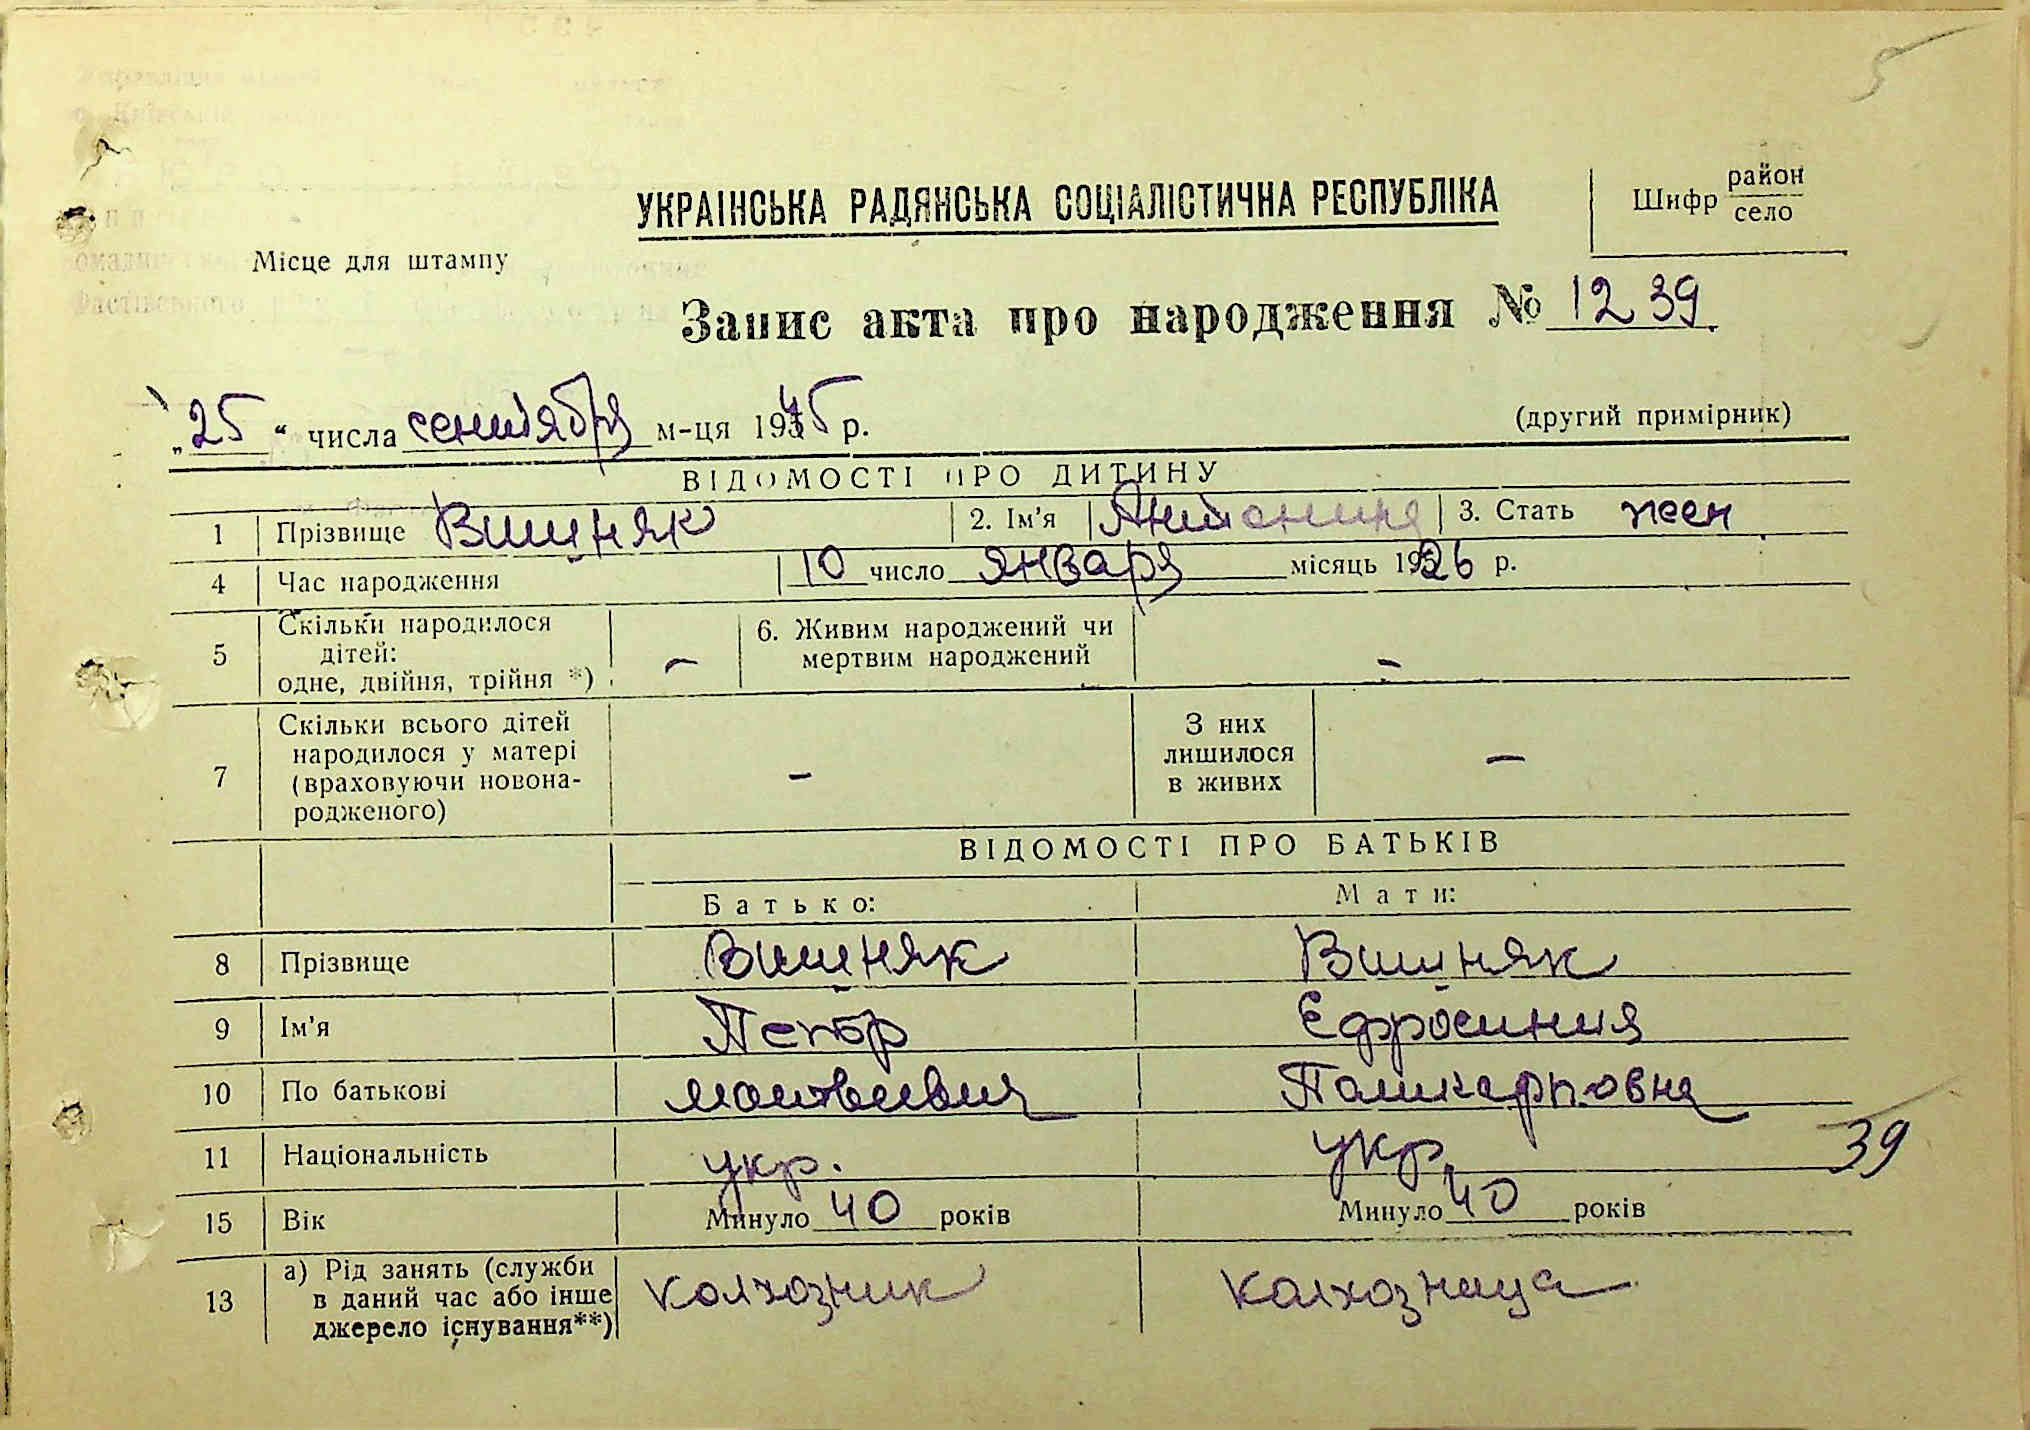 5
УКРАЇНСЬКА РАДЯНСЬКА СОЦІАЛІСТИЧНА РЕСПУБЛІКА
Шифр район
село
Місце для штампу
Запис акта про народження № 1239
„25“ числа сентября м-ця 1945 р.
(другий примірник)
ВІДОМОСТІ ПРО ДИТИНУ
1 Прізвище Вишняк 2. Ім’я Антонина 3. Стать жен
4 Час народження 10 число января місяць 1926 р.
5 Скільки народилося дітей: одне, двійня, трійня *) – 6. Живим народжений чи мертвим народжений –
7 Скільки всього дітей народилося у матері (враховуючи новонародженого) – З них лишилося в живих –
ВІДОМОСТІ ПРО БАТЬКІВ
Батько: Мати:
8 Прізвище Вишняк Вишняк
9 Ім’я Петр Ефросиния
10 По батькові Матвеевич Поликарповна
11 Національність укр. укр.
39
15 Вік Минуло 40 років Минуло 40 років
13 а) Рід занять (служби в даний час або інше джерело існування**) колхозник колхозница